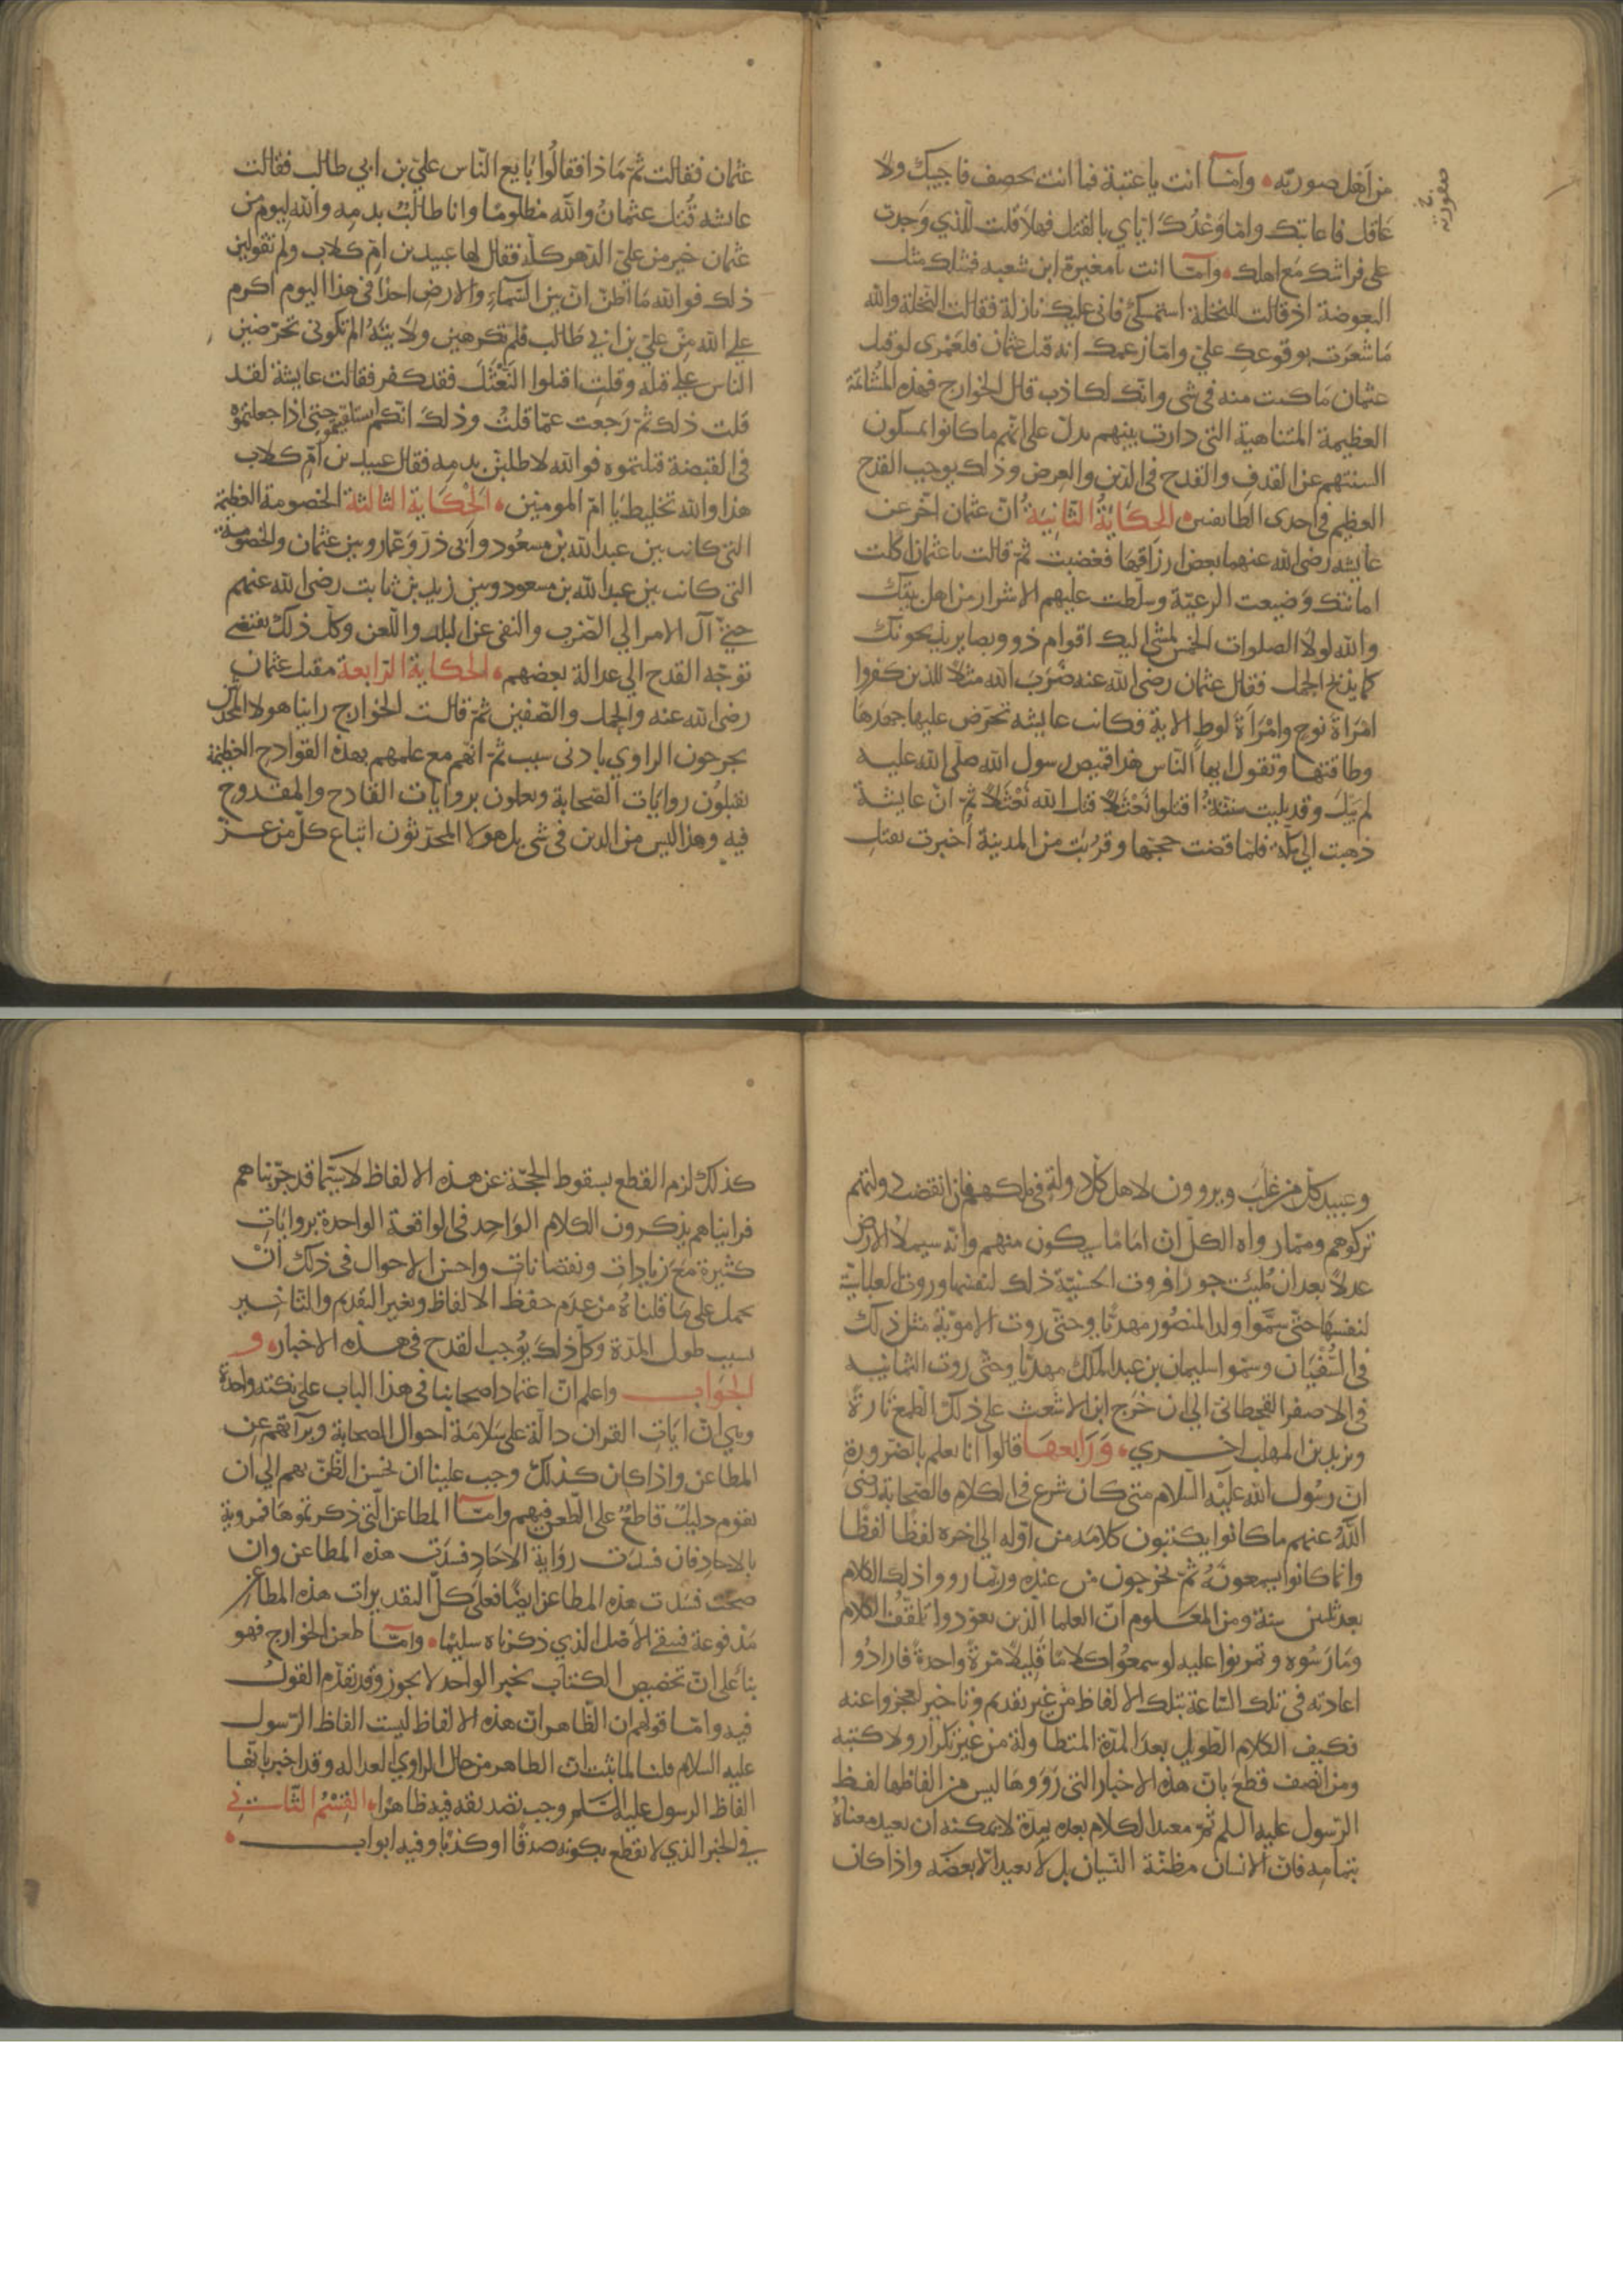 من اهل صوريّه وامّا انت يا عتبة فما انت بحصف فاجيبك ولا
صفوريّه خ
عاقل فاعاتبك وامّا وعدك ايّاي بالقتل فهلّا قتلت الّذي وجدت
على فراشك مع اهلك وامّا انت يا مغيرة ابن شعبه فمثلك مثل
البعوضة اذ قالت للنخلة استمسكى فانى عليك نازلة فقالت النخلة والله
ما شعرت بوقوعك علىّ وامّا زعمك انه قتل عثمان فلعمرى لو قتل
عثمان ما كنت منه فى شى وانك لكاذب قال الخوارج فهذه المشاتمة
العظيمة المتناهية التى دارت بينهم تدلّ على انهم ما كانوا يمسكون
السنتهم عن القذف والقدح فى الدين والعرض وذلك يوجب القدح
العظيم فى احدى الطايفتين الحكاية الثانية انّ عثمان اخّر عن
عايشه رضى الله عنهما بعض ارزاقها فغضبت ثمّ قالت يا عثمان اكلت
امانتك وضيعت الرعيّة وسلّطت عليهم الاشرار من اهل بيتك
والله لولا الصلوات الخمس لمشى اليك اقوام ذوو بصاير يذبحونك
كما يذبح الجمل فقال عثمان رضى الله عنه ضرب الله مثلا للذين كفروا
امراة نوح وامراة لوط الاية فكانت عايشه تحرّض عليها جهدها
وطاقتها وتقول ايها النّاس هذا قميص رسول الله صلى الله عليه
لم يبل وقد بليت سنّته اقتلوا نعثلا قتل الله نعثلا ثمّ انّ عايشة
ذهبت الى مكّة فلمّا قضت حجتها وقربت من المدينة اخبرت بقتل
عثمان فقالت ثمّ ماذا فقالوا بايع النّاس علىّ بن ابي طالب فقالت
عايشه قتل عثمان والله مظلوما وانا طالبت بدمه والله ليوم من
عثمان خير من علىّ الدّهر كلّه فقال لها عبيد بن امّ كلاب ولم تقولين
ذلك فوالله ما اظنّ انّ بين السّماء والارض احدا فى هذا اليوم اكرم
على الله من علىّ بن ابي طالب فلم تكرهين ولايته الم تكونى تحرّضين
الناس على قتله وقلت اقتلوا النّعثل فقد كفر فقالت عايشة لقد
قلت ذلك ثمّ رجعت عمّا قلت وذلك انّكم حتى اذا جعلتموه
فى القبضة قتلتموه فوالله لاطلبنّ بدمه فقال عبيد بن امّ كلاب
هذا والله تخليط يا امّ المومنين الحكاية الثالثة الخصومة العظيمة
التى كانت بين عبد الله بن مسعود وابى ذرّ وعمّار وبين عثمان والخصومة
التى كانت بين عبد الله بن مسعود وبين زيد بن ثابت رضى الله عنهم
حتى آل الامر الى الضرب والنفى عن البلد واللّعن وكلّ ذلك يقتضى
توجّه القدح الى عدالة بعضهم الحكاية الرابعة مقتل عثمان
رضى الله عنه والجمل والصّفين ثمّ قالت الخوارج راينا هولا المحدثين
يجرحون الراوي بادنى سبب ثمّ انهم مع علمهم بهذه القوادح العظيمة
يقبلون روايات الصحابة ويعملون بروايات القادح والمقدوح
فيه وهذا ليس من الدين فى شى بل هولا المحدّثون اتباع كلّ من عزّ
وعبيد كلّ من غلب ويروون لاهل كلّ دولة فى ملكهم فان انقضت دولتهم
تركوهم وممّا رواه الكلّ ان اماما يكون منهم وانّه سيملا الارض
عدلا بعد ان مليت جورا فروت الحسنيّة ذلك لنفسها وروت العباسيّة
لنفسها حتّى سمّوا ولد المنصور مهديّا وحتّى روت الامويّة مثل ذلك
فى السّفيان وسمّوا سليمان بن عبد الملك مهديّا وحتّى روت اليمانيه
فى الاصفر القحطانىّ الى ان خرج ابن الاشعث على ذلك الطمع تارة
ويزيد بن المهلب اخرى ورابعها قالوا انا نعلم بالضرورة
انّ رسول الله عليه السلام متى كان شرع فى الكلام فالصحابة رضى
الله عنهم ما كانوا يكتبون كلامه من اوّله الى اخره لفظا لفظا
وانّما كانوا يسمعونه ثمّ يخرجون من عنده وربّما رووا ذلك الكلام
بعد ثلثين سنة ومن المعلوم انّ العلما الذين تعوّدوا تلقّف الكلام
ومارسوه وتمرنوا عليه لو سمعوا كلاما قليلا مرّة واحدة فارادوا
اعادته فى تلك السّاعة بتلك الالفاظ من غير تقديم وتاخير لعجزوا عنه
فكيف الكلام الطويل بعد المدّة المتطاولة من غير تكرار ولا كتبة
ومن انصف قطع بانّ هذه الاخبار التى رووها ليس من الفاظها لفظ
الرّسول عليه السلم ثمّ معيد الكلام بعده بمدّة لا يمكنه ان يعيد معناه
بتمامه فانّ الانسان مظنّة النّسيان بل لا يعيد الّا بعضه واذا كان
كذلك لزم القطع بسقوط الحجّة عن هذه الالفاظ لا سيّما قد جرّبناهم
فرايناهم يذكرون الكلام الواحد فى الواقعة الواحدة بروايات
كثيرة مع زيادات ونقصانات واحسن الاحوال فى ذلك ان
يحمل على ما قلناه من عدم حفظ الالفاظ وتغير التقديم والتاخير
بسبب طول المدّة وكلّ ذلك يوجب القدح فى هذه الاخبار و
الجواب واعلم انّ اعتماد اصحابنا فى هذا الباب على نكتة واحدة
وهى انّ ايات القران دالّة على سلامة احوال الصحابة وبرآتهم عن
المطاعن واذا كان كذلك وجب علينا ان نحسن الظنّ بهم الى ان
يقوم دليل قاطع على الطّعن فيهم وامّا المطاعن الّتى ذكرتموها فمروية
بالاحاد فان فسدت رواية الاحاد فسدت هذه المطاعن وان
صحّت فسدت هذه المطاعن ايضا فعلى كلّ التقديرات هذه المطاعن
مدفوعة فيبقى الاصل الذي ذكرناه سليما وامّا طعن الخوارج فهو
بنا على انّ تخصيص الكتاب بخبر الواحد لا يجوز وقد تقدّم القول
فيه وامّا قولهم ان الظاهر انّ هذه الالفاظ ليست الفاظ الرّسول
عليه السلام قلنا لما ثبت انّ الظاهر من حال الراوي العداله وقد اخبر بانّها
الفاظ الرسول عليه السّلم وجب تصديقه فيه ظاهرا القسم الثانى
فى الخبر الذي لا نقطع بكونه صدقا او كذبا وفيه ابواب